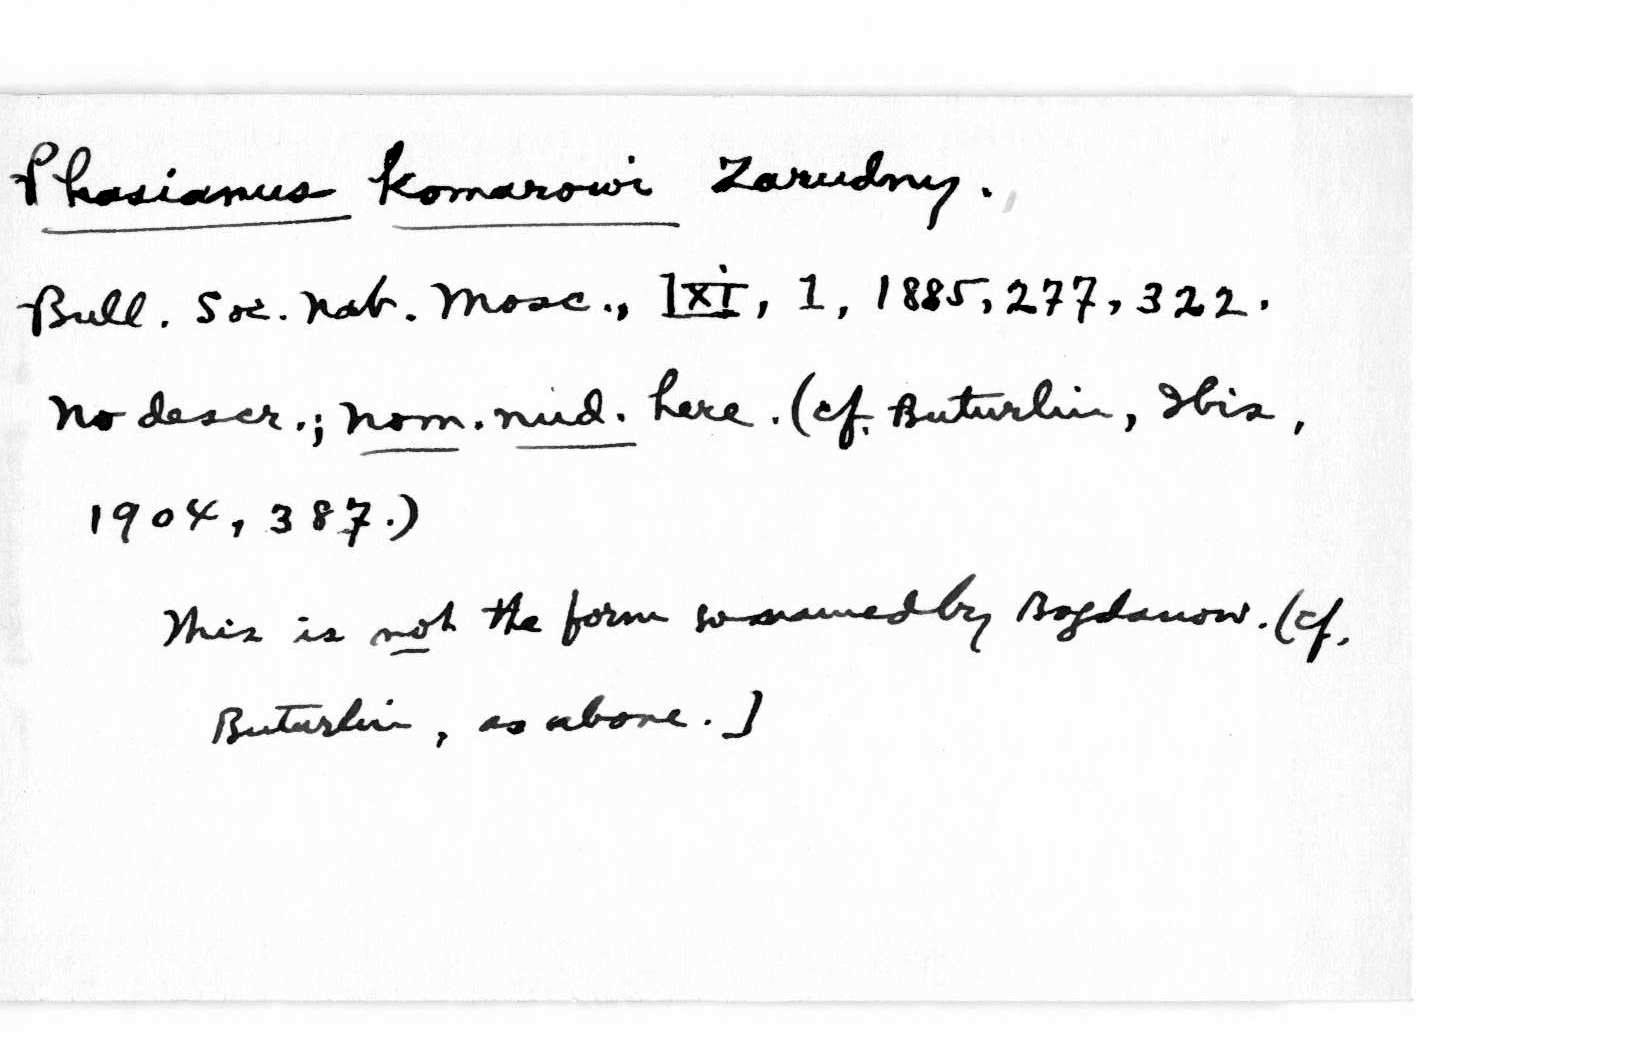 Phasianus komarowi Zarudny.
Bull. Soc. Nat. Mosc., LXI, 1, 1885, 277, 322.
No descr.; nom. nud. here. (cf. Buturlin, Ibis,
1904, 387.)
This is not the form so named by Bogdanow. (cf.
Buturlin, as above.]